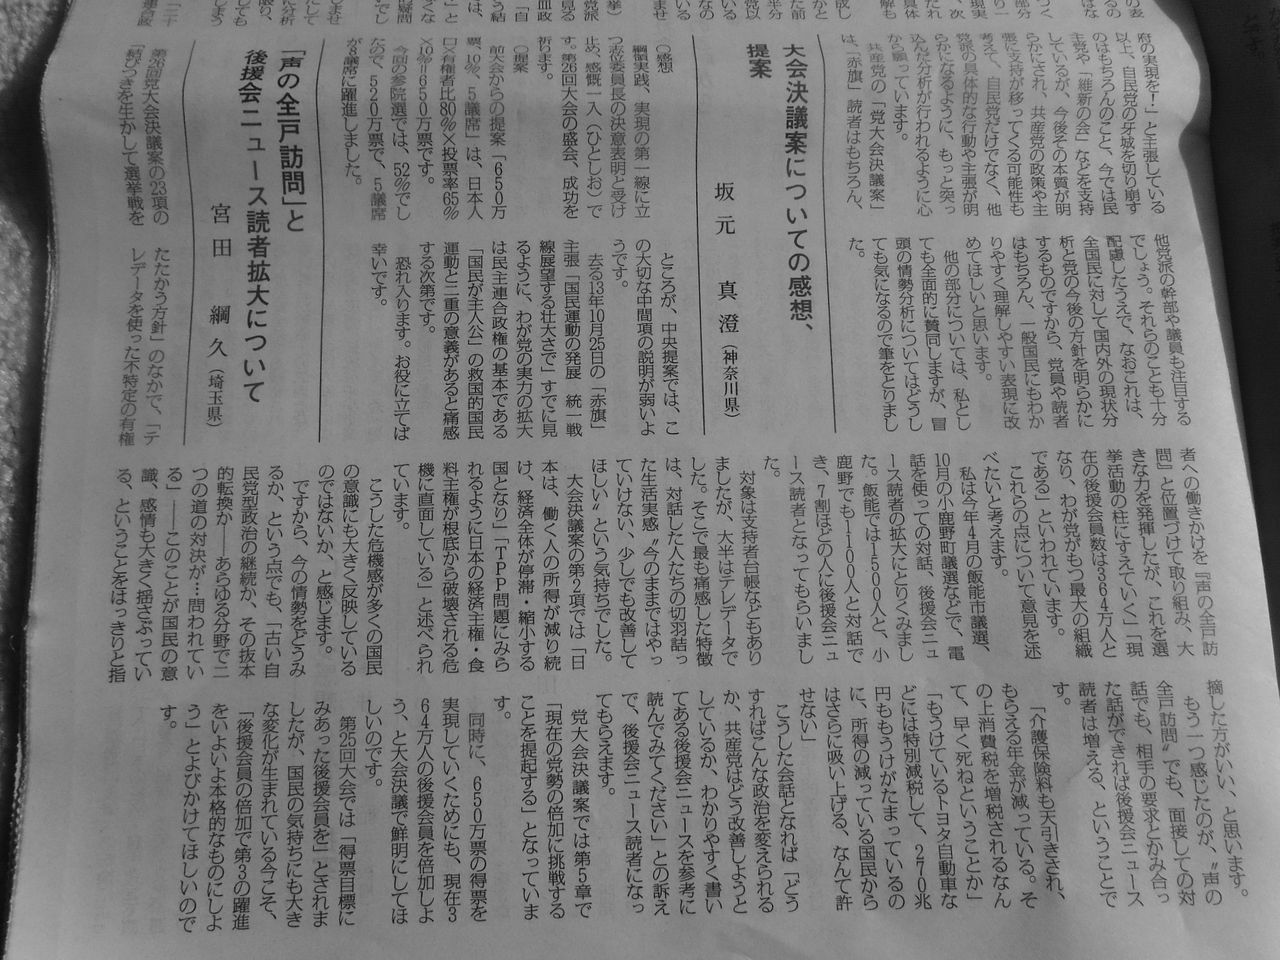 府の実現を！」と主張している
以上、自民党の牙城を切り崩す
のはもちろんのこと、今では民
主党や「維新の会」などを支持
しているが、今後その本質が明
らかにされ、共産党の政策や主
張に支持が移ってくる可能性も
考えて、自民党だけでなく、他
党派の具体的な行動や主張が明
らかになるように、もっと突っ
込んだ分析が行われるように心
から願っています。
共産党の「党大会決議案」
は、「赤旗」読者はもちろん、
他党派の幹部や議員も注目する
でしょう。それらのことも十分
配慮したうえで、なおこれは、
全国民に対して国内外の現状分
析と党の今後の方針を明らかに
するものですから、党員や読者
はもちろん、一般国民にもわか
りやすく理解しやすい表現に改
めてほしいと思います。
他の部分については、私とし
ても全面的に賛同しますが、冒
頭の情勢分析についてはどうし
ても気になるので筆をとりまし
た。
大会決議案についての感想、
提案
坂元 真澄（神奈川県）
〇感想
綱領実践、実現の第一線に立
つ志位委員長の決意表明と受け
止め、感慨一入（ひとしお）で
す。第26回大会の盛会、成功を
祈ります。
〇提案
前大会からの提案「650万
票、10％、5議席」は、日本人
口×有権者比80％×投票率65％
×10％＝650万票です。
今回の参院選では、52％でし
たので、520万票で、5議席
が8議席に躍進しました。
ところが、中央提案では、こ
の大切な中間項の説明が弱いよ
うです。
去る13年10月25日の「赤旗」
主張「国民運動の発展 統一戦
線展望する壮大さで」すでに見
るように、わが党の実力の拡大
は民主連合政権の基本である
「国民が主人公」の救国的国民
運動と二重の意義があると痛感
する次第です。
恐れ入ります。お役に立てば
幸いです。
「声の全戸訪問」と
後援会ニュース読者拡大について
宮田 綱久（埼玉県）
第26回党大会決議案の23項の
「結びつきを生かして選挙戦を
たたかう方針」のなかで、「テ
レデータを使った不特定の有権
者への働きかけを『声の全戸訪
問』と位置づけて取り組み、大
きな力を発揮したが、これを選
挙活動の柱にすえていく」「現
在の後援会員数は364万人と
なり、わが党がもつ最大の組織
である」といわれています。
これらの点について意見を述
べたいと考えます。
私は今年4月の飯能市議選、
10月の小鹿野町議選などで、電
話を使っての対話、後援会ニュ
ース読者の拡大にとりくみまし
た。飯能では1500人と、小
鹿野でも1100人と対話で
き、7割ほどの人に後援会ニュ
ース読者となってもらいまし
た。
対象は支持者台帳などもあり
ましたが、大半はテレデータで
した。そこで最も痛感した特徴
は、対話した人たちの切羽詰っ
た生活実感〝今のままではやっ
ていけない、少しでも改善して
ほしい〟という気持ちでした。
大会決議案の第2項では「日
本は、働く人の所得が減り続
け、経済全体が停滞・縮小する
国となり」「TPP問題にみら
れるように日本の経済主権・食
料主権が根底から破壊される危
機に直面している」と述べられ
ています。
こうした危機感が多くの国民
の意識にも大きく反映している
のではないか、と感じます。
ですから、今の情勢をどうみ
るか、という点でも、「古い自
民党型政治の継続か、その抜本
的転換か――あらゆる分野で二
つの道の対決が…問われてい
る」――このことが国民の意
識、感情も大きく揺さぶってい
る、ということをはっきりと指
摘した方がいい、と思います。
もう一つ感じたのが、〝声の
全戸訪問〟でも、面接しての対
話でも、相手の要求とかみ合っ
た話ができれば後援会ニュース
読者は増える、ということで
す。
「介護保険料も天引きされ、
もらえる年金が減っている。そ
の上消費税を増税されるなん
て、早く死ねということか」
「もうけているトヨタ自動車な
どには特別減税して、270兆
円ももうけがたまっているの
に、所得の減っている国民から
はさらに吸い上げる、なんて許
せない」
こうした会話となれば「どう
すればこんな政治を変えられる
か、共産党はどう改善しようと
しているか、わかりやすく書い
てある後援会ニュースを参考に
読んでみてください」との訴え
で、後援会ニュース読者になっ
てもらえます。
党大会決議案では第5章で
「現在の党勢の倍加に挑戦する
ことを提起する」となっていま
す。
同時に、650万票の得票を
実現していくためにも、現在3
64万人の後援会員を倍加しよ
う、と大会決議で鮮明にしてほ
しいのです。
第25回大会では「得票目標に
みあった後援会員を」とされま
したが、国民の気持ちにも大き
な変化が生まれている今こそ、
「後援会員の倍加で第3の躍進
をいよいよ本格的なものにしよ
う」とよびかけてほしいので
す。